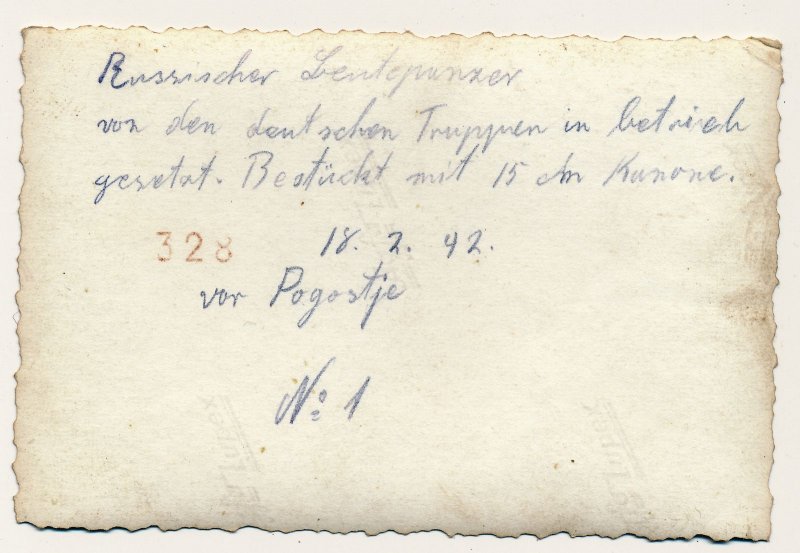 Russischer Beutepanzer
von den deutschen Truppen in betrieb
gesetzt. Bestückt mit 15 cm Kanone.
328 18. 2. 42.
vor Pogostje
No 1